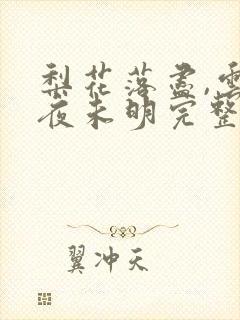 梨花落盡,雲
夜未明完整
翼冲天